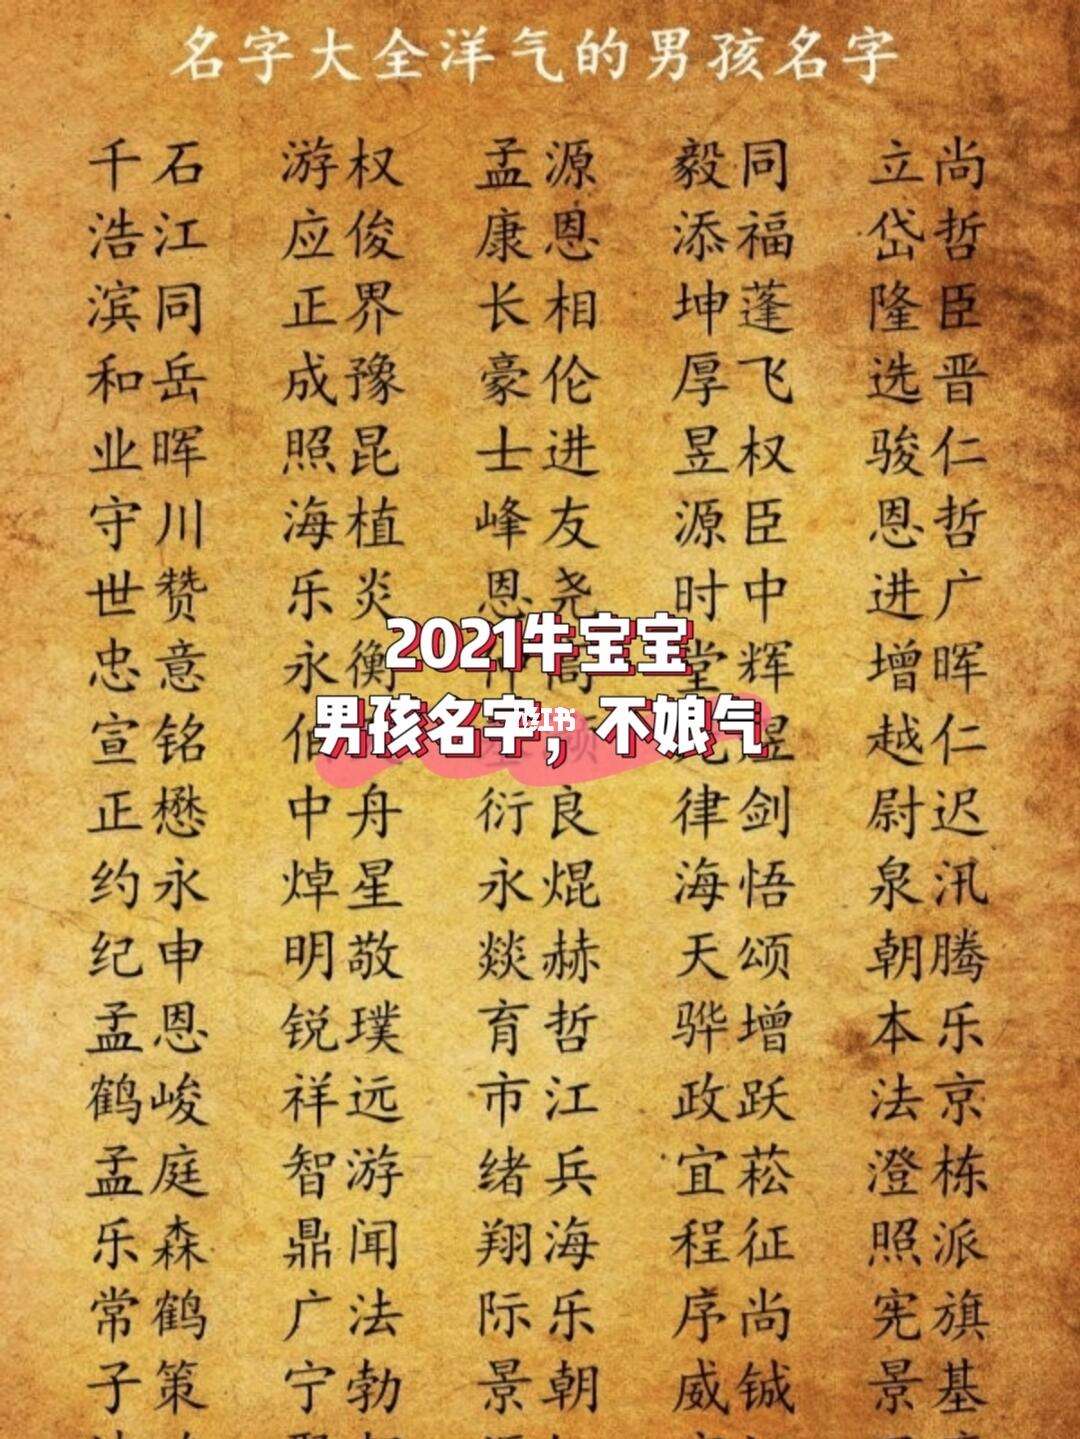 名字大全洋气的男孩名字
千石 游权 孟源 毅同 立尚
浩江 应俊 康恩 添福 岱哲
滨同 正界 长相 坤蓬 隆臣
和岳 成豫 豪伦 厚飞 选晋
业晖 照昆 士进 昱权 骏仁
守川 海植 峰友 源臣 恩哲
世赞 乐炎 恩尧 时中 进广
2021牛宝宝
忠意 永衡 堂辉 增晖
男孩名字，不娘气
小红书
宣铭 越仁
正懋 中舟 衍良 律剑 尉迟
约永 焯星 永焜 海悟 泉汛
纪申 明敬 燚赫 天颂 朝腾
孟恩 锐璞 育哲 骅增 本乐
鹤峻 祥远 市江 政跃 法京
孟庭 智游 绪兵 宜菘 澄栋
乐森 鼎闻 翔海 程征 照派
常鹤 广法 际乐 序尚 宪旗
子策 宁勃 景朝 威铖 景基